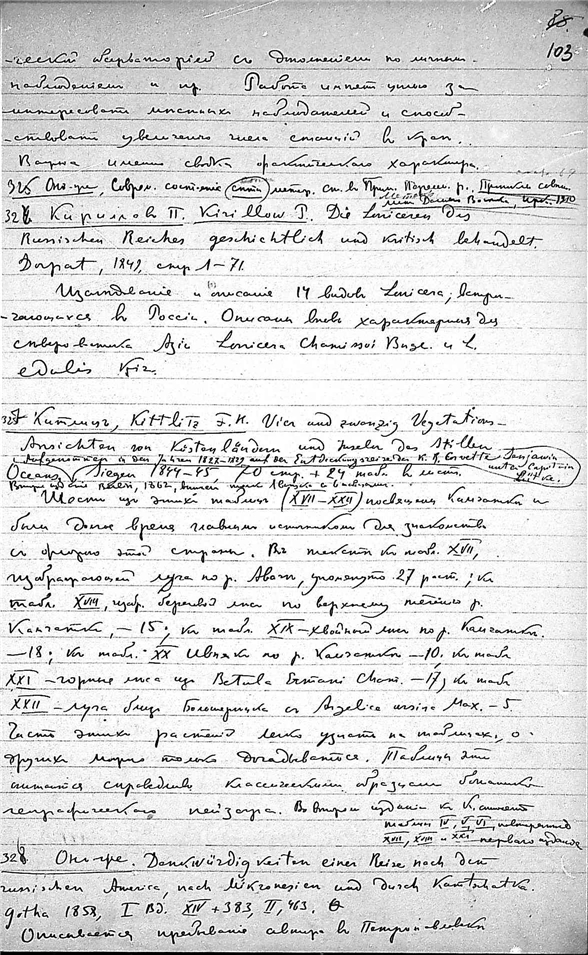 103
-ческой обсерваторией с дополнением по личным
наблюдениям и пр. Работа имеет целью за-
интересовать местных наблюдателей и способ-
-ствовать увеличению числа станций в крае.
Важна именно сводка фактического характера.
326 Он-же, Соврем. состояние сети метеор. ст. в Прим.
Кириллов П. Kirillow P. Die Loniceren des
Russischen Reiches geschichtlich und kritisch behandelt.
Dorpat, 1849, стр 1–71.
Исследование и описание 14 видов Lonicera, встре-
-чающихся в России. Описаны вновь характерные для
северовостока Азии Lonicera Chamissoi Bunge. и L.
edulis
Китлиц, Kittlitz F. H. Vier und zwanzig Vegetations-
Ansichten von Küstenländern und Inseln des Stillen
Aufgenommen in den Jahren 1827–1829 auf der Entdeckungsreise der K. R. Corvette Senjawin
unter Capitain
Lütke.
Oceans, Siegen 1844–45 70 стр. + 24 табл. в лист.
Шесть из этих таблиц (XVII–XXII) посвящены Камчатке и
были долгое время главным источником для знакомства
с флорою этой страны. В тексте к табл. XVII,
изображающей луга по р. Авачи, упомянуто 27 раст.; к
табл. XVIII, изобр. березовый лес по верхнему течению р.
Камчатки, – 15; к табл. XIX – хвойный лес по р. Камчатке.
– 18; к табл. XX Ивняк по р. Камчатке – 10; к табл
XXI – горные леса из Betula Ermani Cham. – 17; к табл
XXII – луга близ Большерецка с Angelica ursina Max. – 5.
Часть этих растений легко узнать на таблицах, о
других можно только догадываться. Таблицы эти
считаются справедливо классическими образцами ботанико-
географического пейзажа. Во втором издании к К. относят
таблицы IV, V, VI, повторение
XVII, XVIII и XXI первого издания
328 Он-же. Denkwürdigkeiten einer Reise nach dem
russischen America, nach Mikronesien und durch Kamtschatka.
Gotha 1858, I Bd. XIV + 383, II, 463.
Описывается пребывание автора в Петропавловске